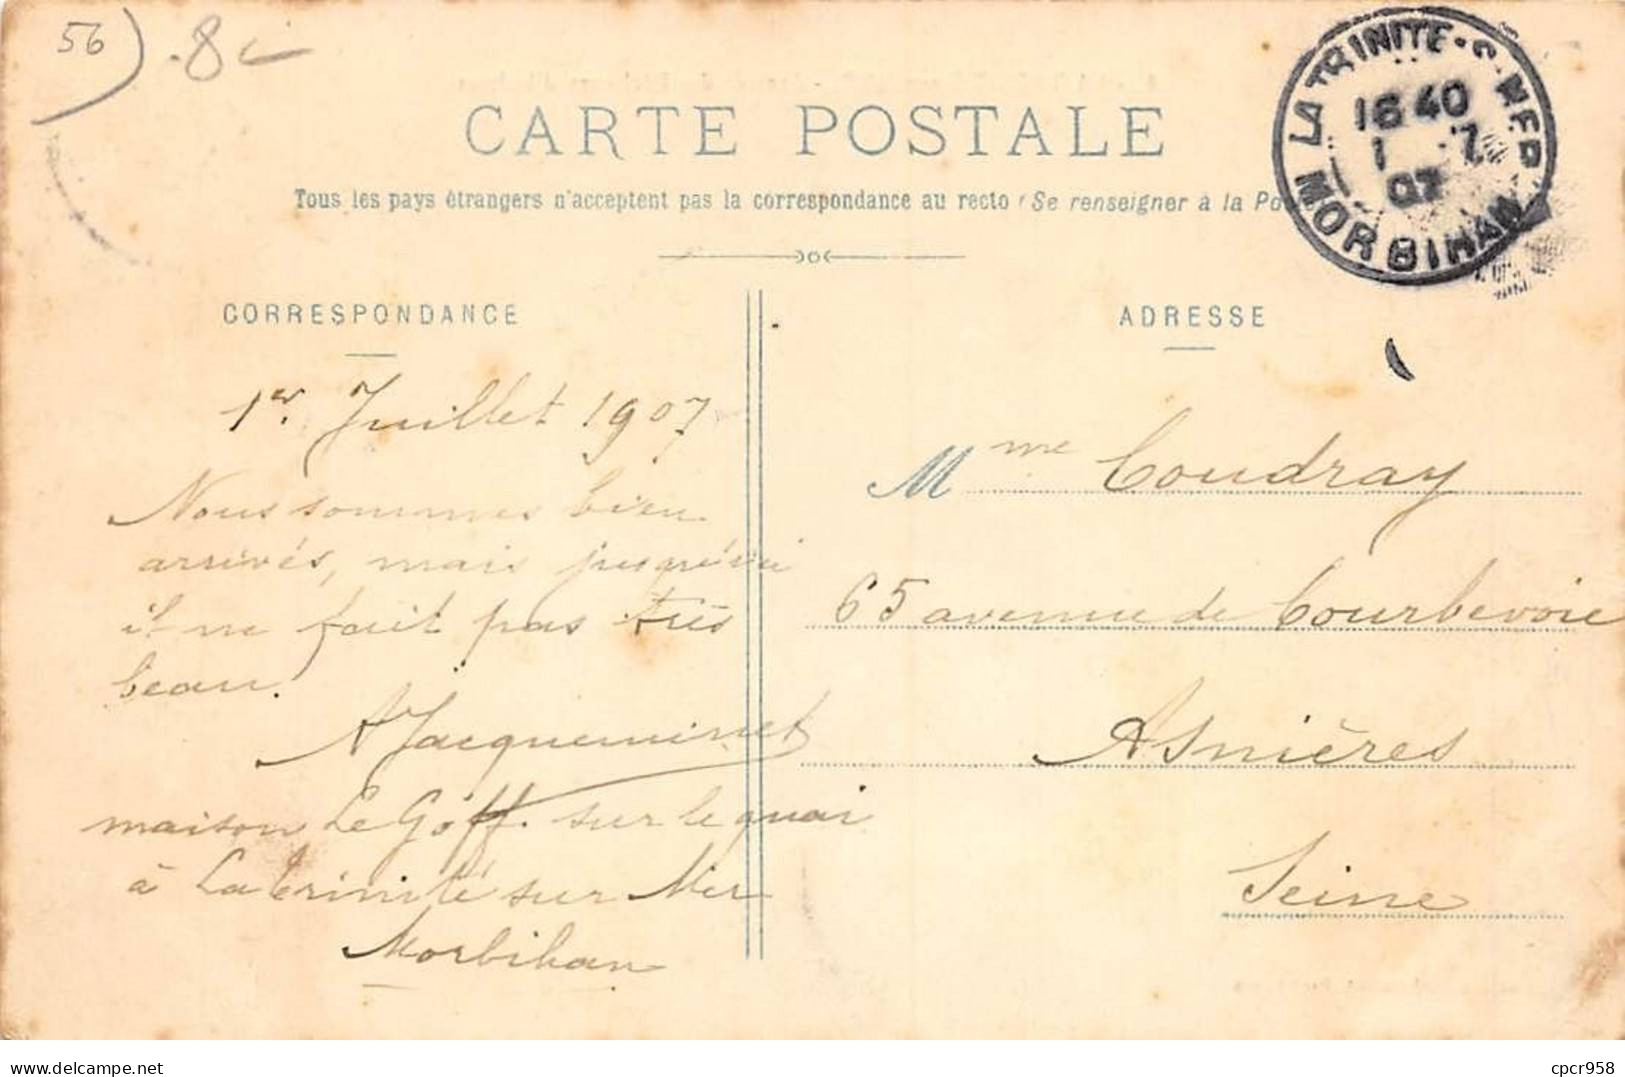 56
8
CARTE POSTALE
Tous les pays étrangers n'acceptent pas la correspondance au recto (Se renseigner à la Poste
LA TRINITE-S-MER
16 40
1 7
07
MORBIHAN
CORRESPONDANCE
1er Juillet 1907
Nous sommes bien
arrivés, mais jusqu'ici
il ne fait pas très
beau.
A Jacqueminet
maison Le Goff. sur le quai
à La Trinité sur Mer
Morbihan
ADRESSE
Mme Coudray
65 avenue de Courbevoie
Asnières
Seine
delcampe.net
cpcr958